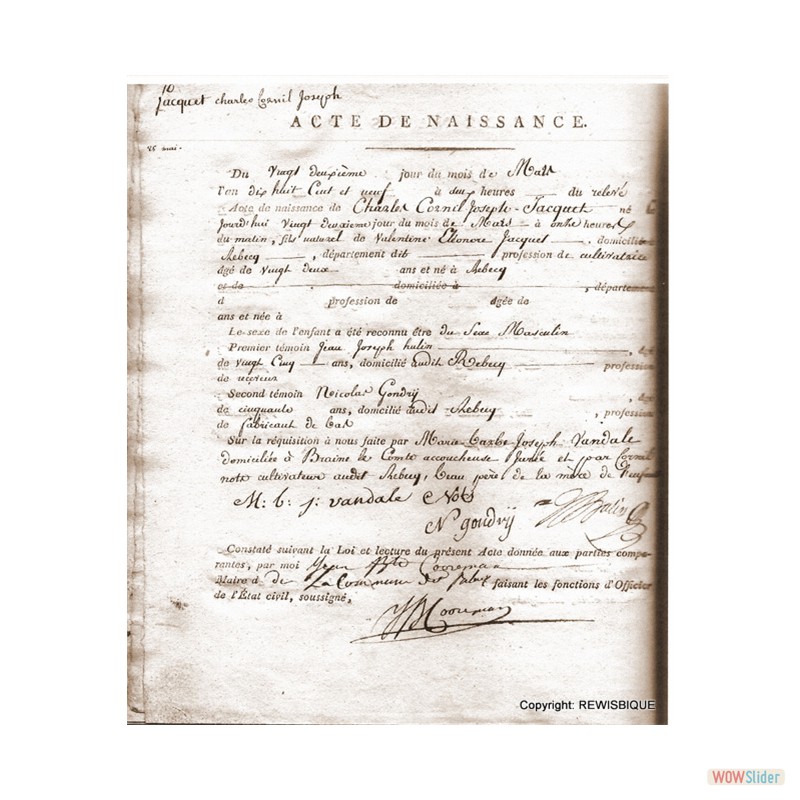 10
Jacquet charles Cornil Joseph
ACTE DE NAISSANCE.
Du Vingt deuxième jour du mois de Mars
l'an dix huit Cent et neuf à deux heures du relevé
Acte de naissance de Charles Cornil Joseph Jacquet né
jourd'hui vingt deuxieme jour du mois de Mars à onze heures
du matin, fils naturel de Valentine Eléonore Jacquet, domicilié
Rebecq, département dit, profession de cultivatrice
âgé de vingt deux ans et né à Rebecq
et de domiciliée à, départeme
d profession de âgée de
ans et née à
Le sexe de l'enfant a été reconnu être du Sexe Masculin
Premier témoin Jean Joseph hulin, âgé
de vingt Cinq ans, domicilié audit Rebecq profession
de
Second témoin Nicolas Gondrÿ, âgé
de cinquante ans, domicilié audit Rebecq, profession
de fabricant de bas
Sur la réquisition à nous faite par Marie barbe Joseph Vandale
domiciliée à Braine le Comte accoucheuse Jurée et par Cornil
note cultivateur audit Rebecq, beau père de la mère de l'enfant
M: b: j: vandale Note
N gondrÿ
Constaté suivant la Loi et lecture du présent Acte donnée aux parties compa-
rantes, par moi Jean Bte Cooreman
Maire d de La Commune de faisant les fonctions d'Officier
de l'État civil, soussigné,
JB Cooreman
Copyright: REWISBIQUE
WOWSlider